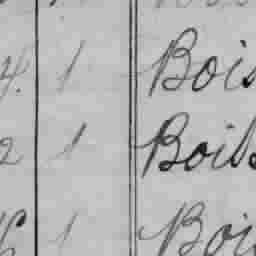 4. 1 Bois
2 1 Boiss
6 1 Boi